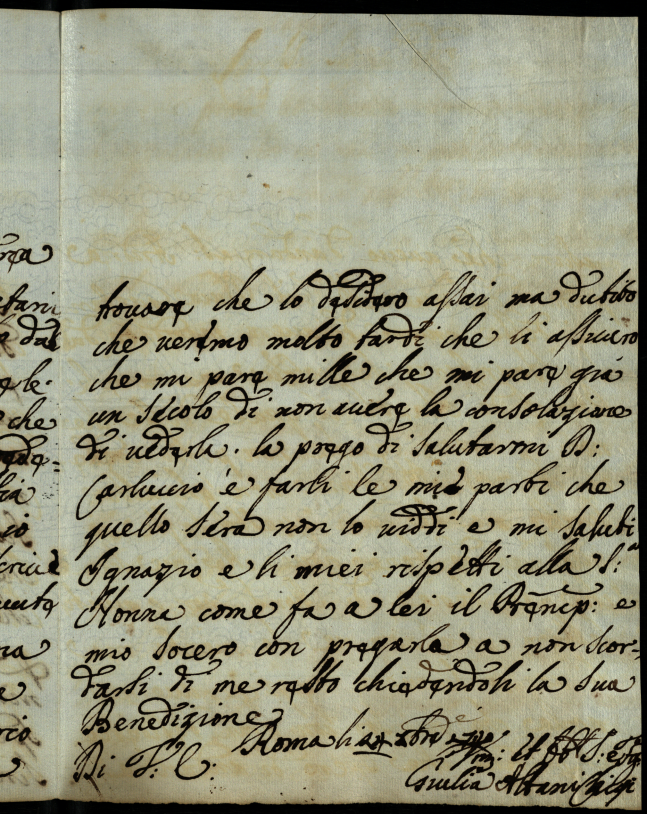 trouare che lo desidero assai ma dubito
che veremo molto tardi che li assicuro
che mi pare mille che mi pare già
un secolo di non auere la consolazione
di uederla. la prego di salutarmi D:
Carluccio e farli le mie parti che
quello sera non lo uiddi e mi saluti
Ignazio e li miei rispetti alla S:ra
Nonna come fa a lei il Prencip: e
mio socero con pregarla a non scor-
darsi di me resto chiedendoli la sua
Benedizione
Roma li
Di V: E:
et
Giulia Albani Chigi